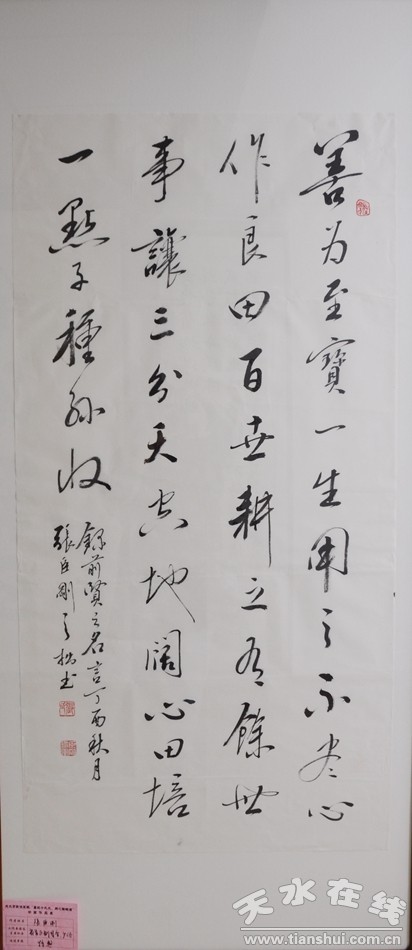 善为至寶一生用之不尽心
作良田百世耕之有餘世
事讓三分天空地闊心田培
一點子種孫收
錄前賢之名言丁酉秋月
張臣刚之拙书
天水在线
www.tianshui.com.cn